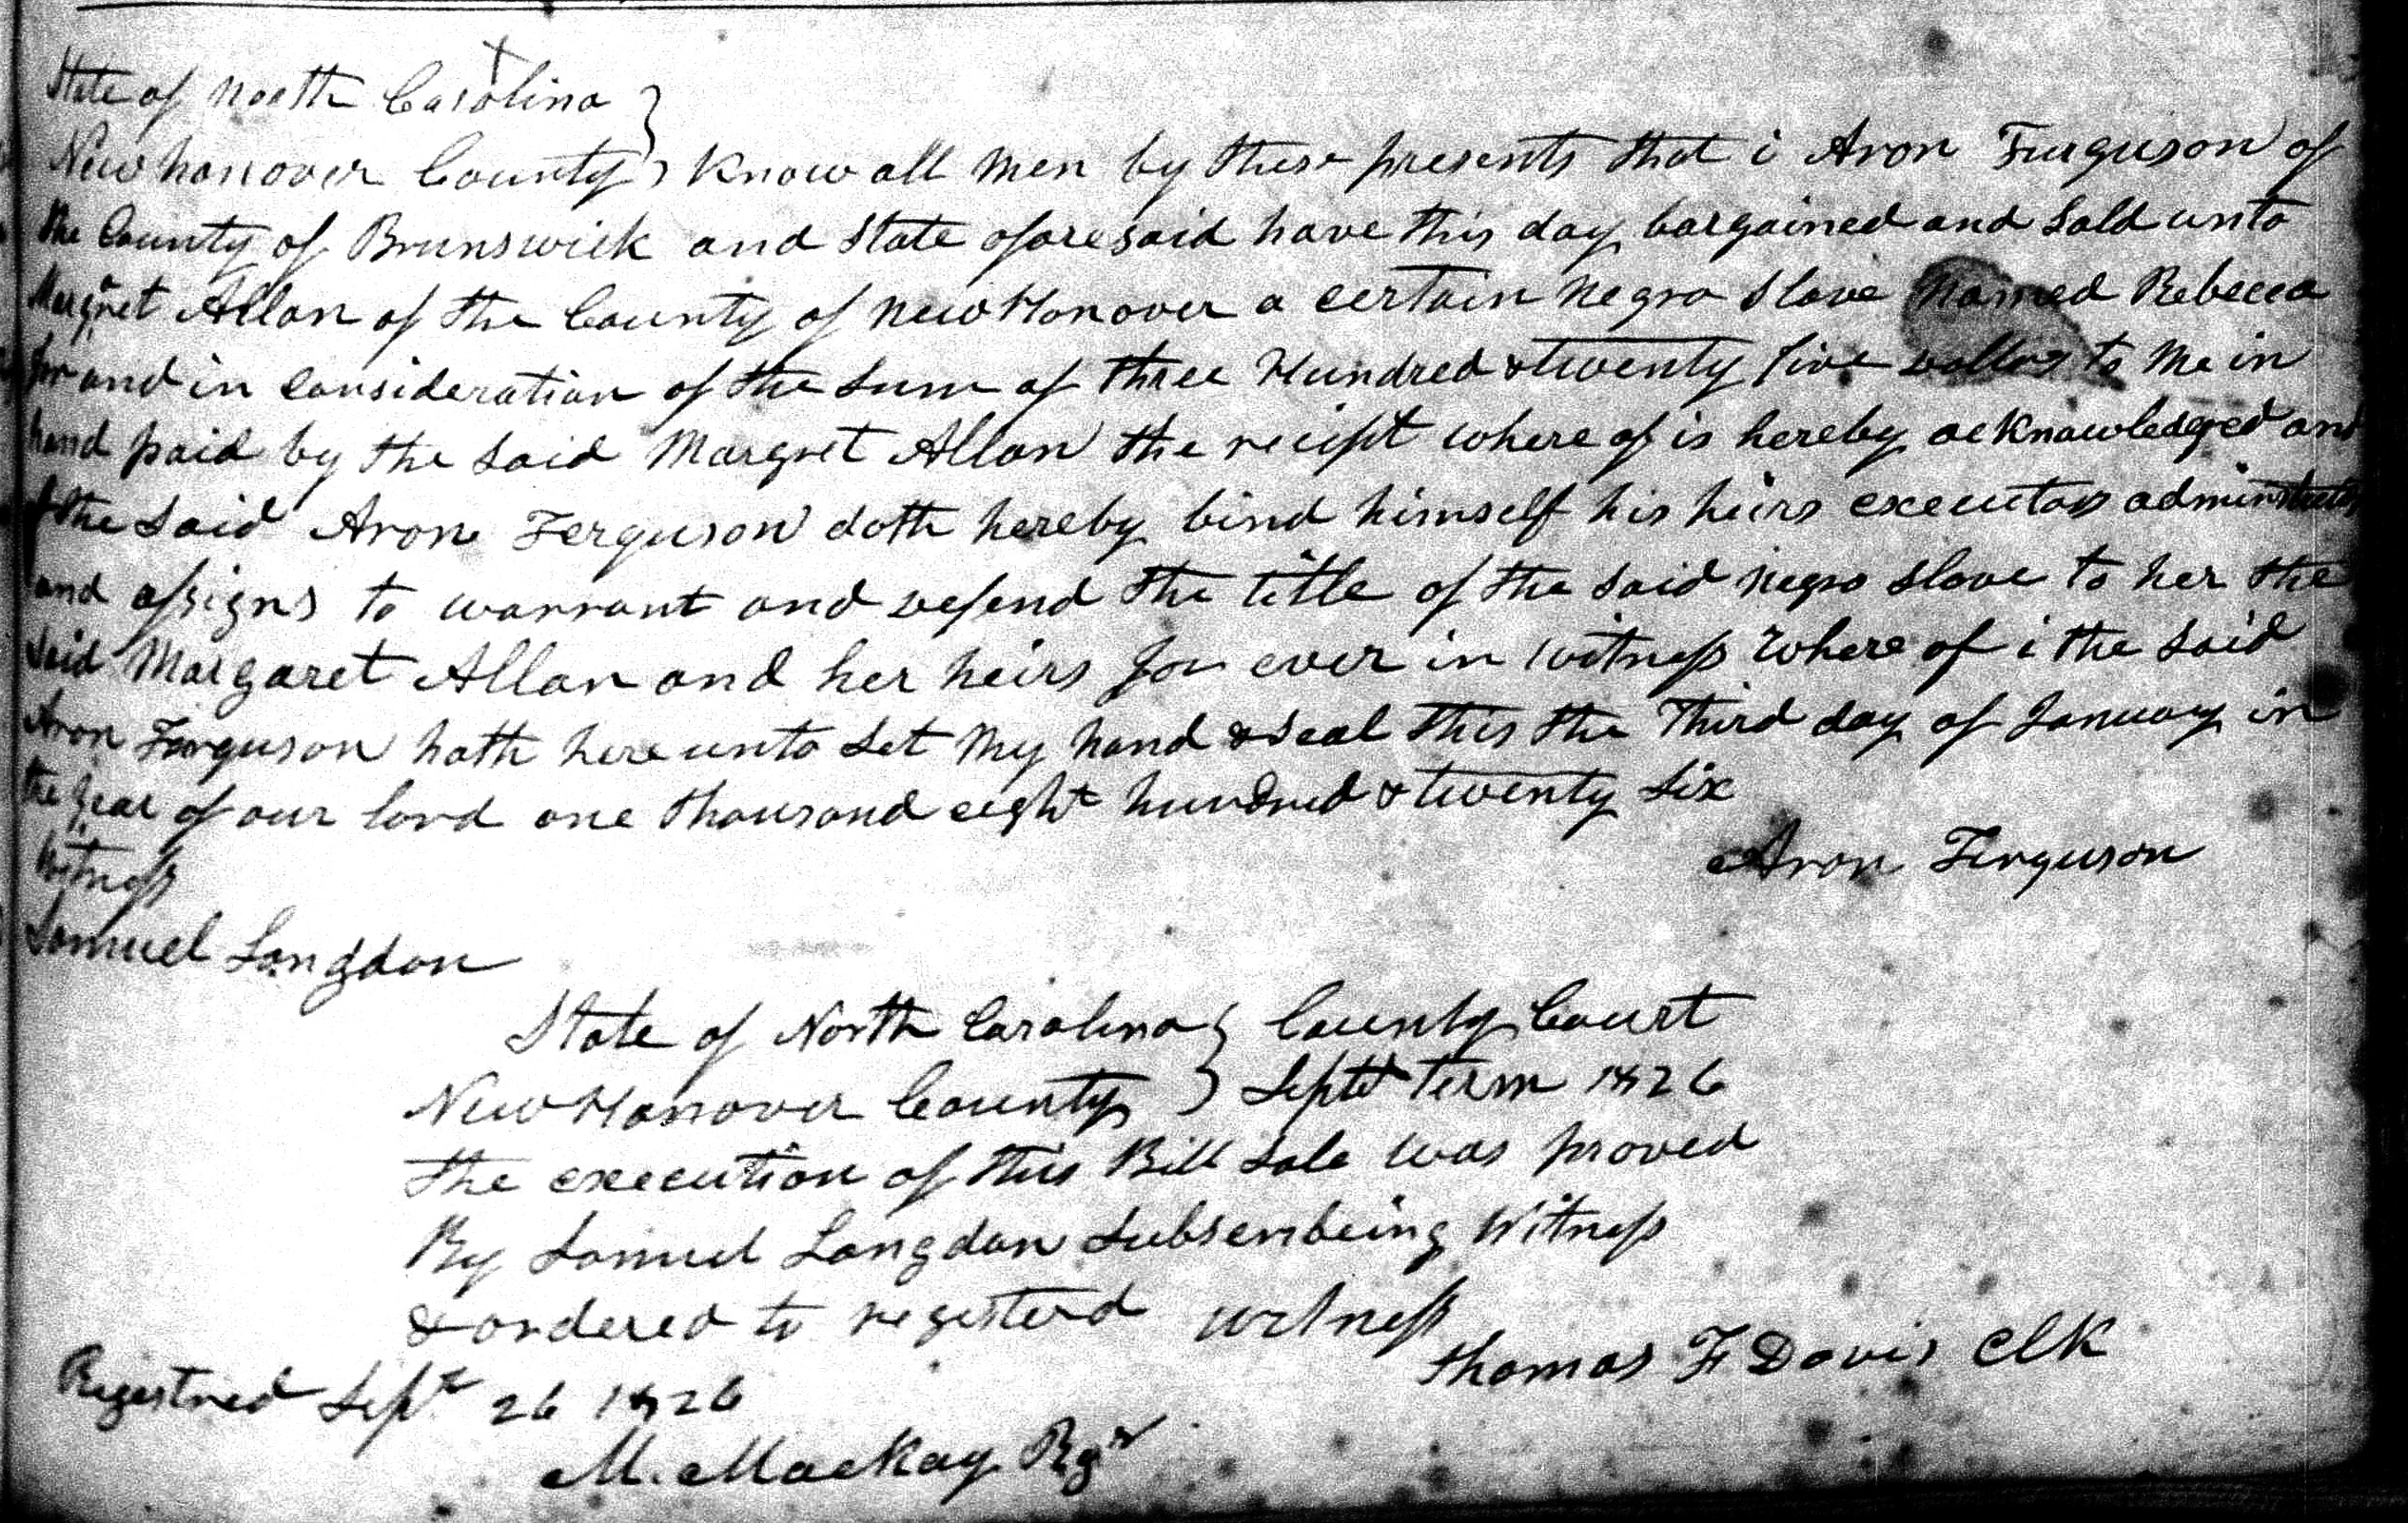 State of North Carolina }
New hanover County } Know all men by these presents that i Aron Furguson of
the County of Brunswick and State aforesaid have this day bargained and Sold unto
Margret Allan of the County of New Hanover a certain Negro Slave Named Rebecca
for and in consideration of the Sum of three Hundred & twenty five dollars to me in
hand paid by the Said Margret Allan the recipt where of is hereby acknowledged and
the Said Aron Ferguson doth hereby bind himself his heirs executors
and assigns to warrant and defend the title of the said negro slave to her the
Said Margaret Allan and her heirs for ever in witness where of i the Said
Aron Furguson hath here unto Set my hand & Seal this the Third day of January in
the year of our lord one thousand eight hundred & twenty Six
Witness
Aron Ferguson
Samuel Langdon
State of North Carolina } County Court
New Hanover County } Sept Term 1826
the execution of this Bill Sale was proved
By Samuel Langdon Subscribeing Witness
& ordered to registerd witness
Thomas F Davis Clk
Registred Sept 26 1826
M. MacKay Rgr